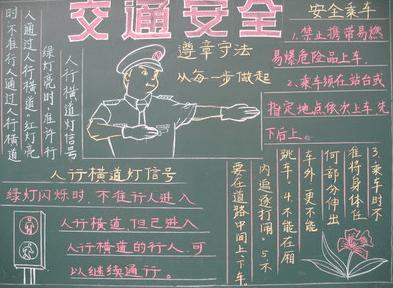 交通安全
人行横道灯信号
绿灯亮时，准许行
人通过人行横道。红灯亮
时不准行人通过人行横道
遵章守法
从一步做起
安全乘车
1.禁止携带易燃
易爆危险品上车.
2、乘车须在站台或
指定地点依次上车，先
下后上。
3.乘车时不
准将身体任
何部分伸出
车外，更不能
跳车。4.不能在厢
内追逐打闹。5.不
要在道路中间上、下车
人行横道灯信号
绿灯闪烁时，不准行人进入
人行横道，但已进入
人行横道的行人，可
以继续通行。